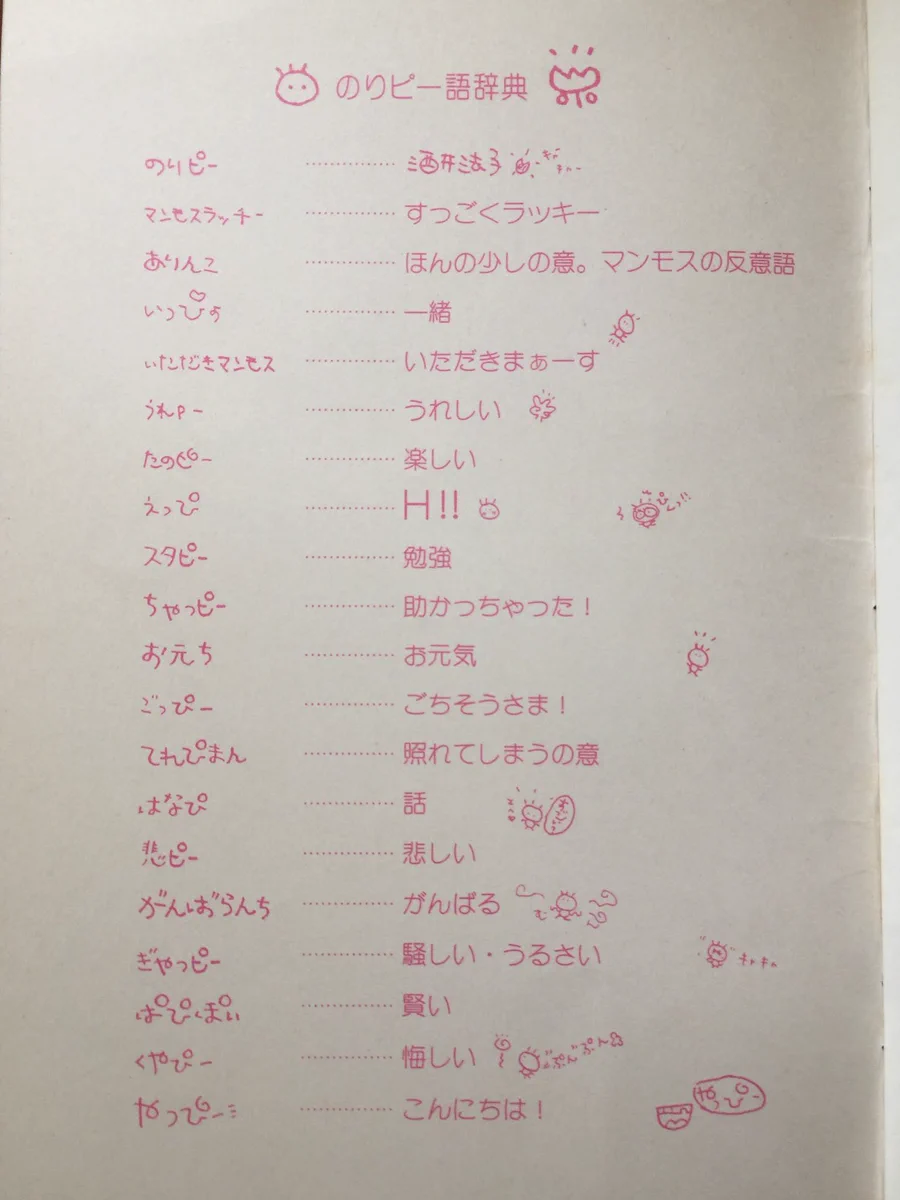 のりピー語辞典
のりピー ………… 酒井法子
マンモスラッチー ………… すっごくラッキー
ありんこ ………… ほんの少しの意。マンモスの反意語
いっぴょ ………… 一緒
いただきマンモス ………… いただきまぁーす
うれP― ………… うれしい
たのピー ………… 楽しい
えっぴ ………… H!!
スタピー ………… 勉強
ちゃっピー ………… 助かっちゃった！
お元ち ………… お元気
ごっぴー ………… ごちそうさま！
てれぴまん ………… 照れてしまうの意
はなぴ ………… 話
悲ピー ………… 悲しい
がんばらんち ………… がんばる
ぎゃっピー ………… 騒しい・うるさい
ぱぴぽい ………… 賢い
くやぴー ………… 悔しい ぷんぷん
やっぴー ………… こんにちは！
やっぴー